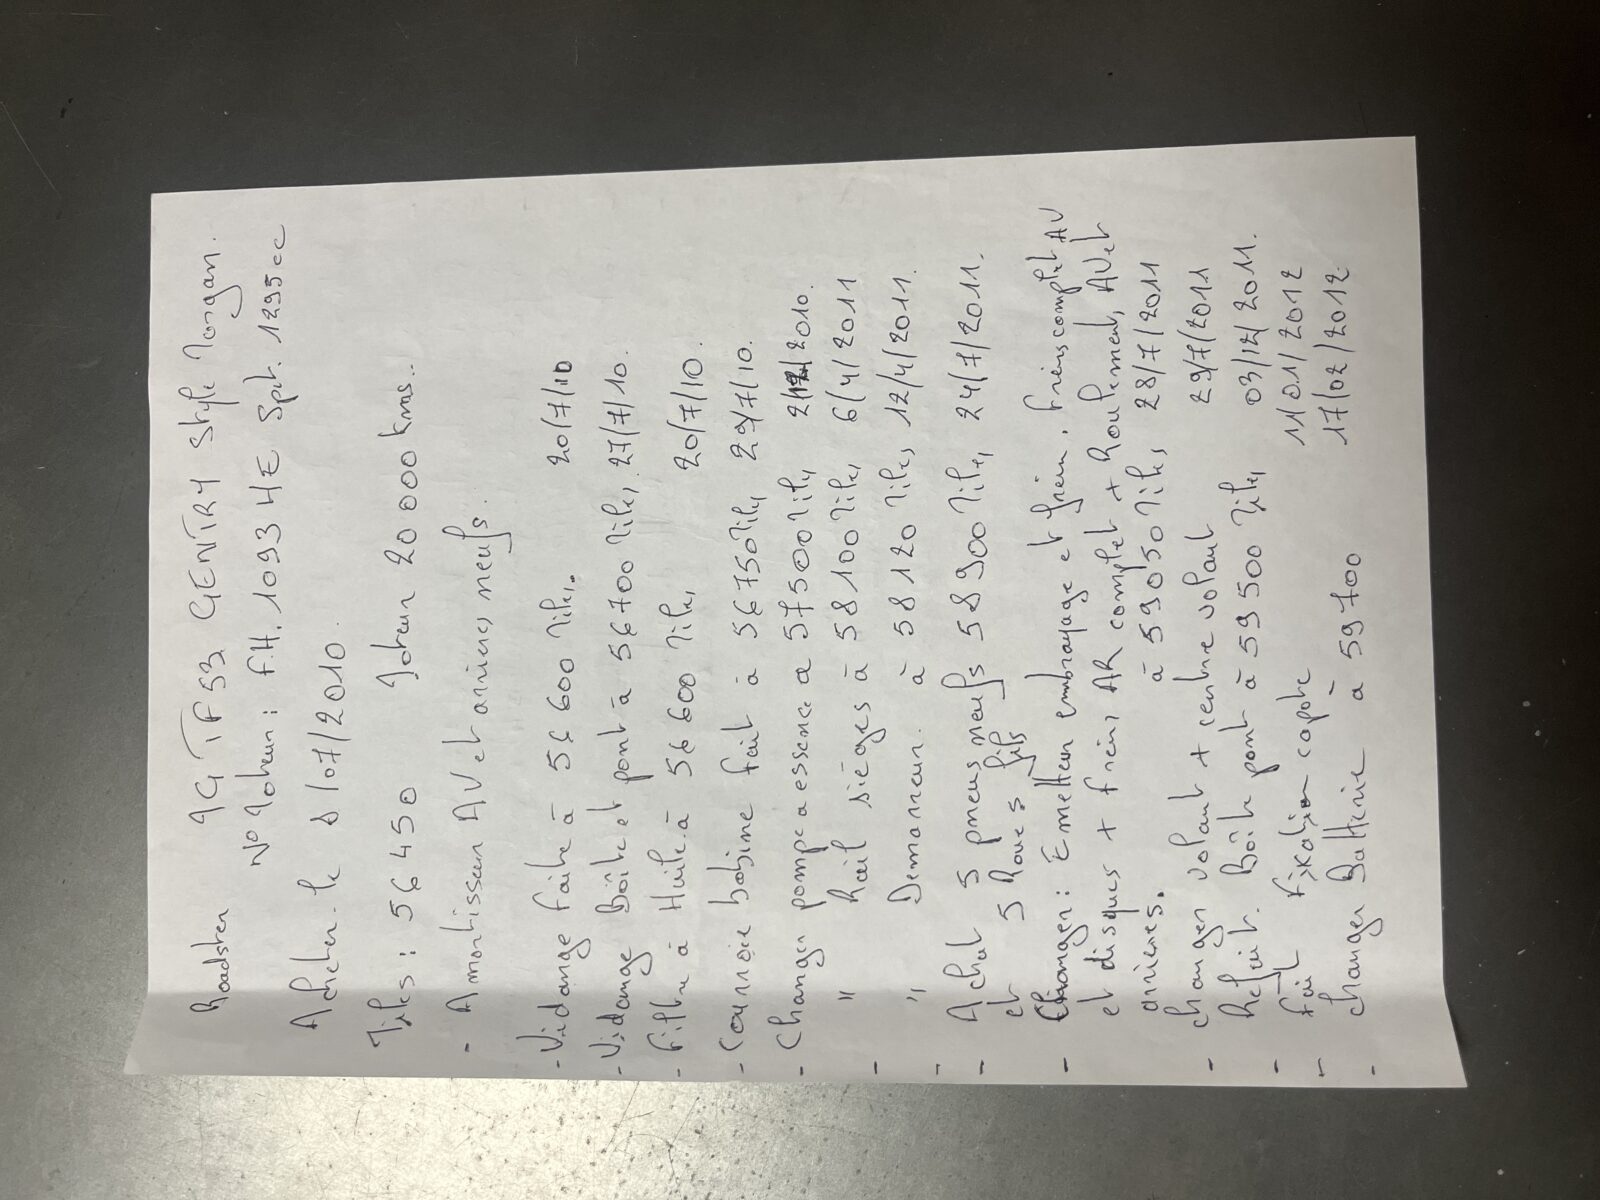 Roadster MG TF 53 GENTRY Style Morgan.
N° Moteur : F.H. 1093 HE Spit. 1295cc
Acheter le 8/07/2010.
Miles : 56450 Moteur 20 000 kms..
- Amortisseur AV et arrières neufs.
- Vidange faite à 56 600 Miles. 20/7/10
- Vidange Boite et pont à 56700 Miles, 27/7/10.
- Filtre à Huile à 56 600 Miles 20/7/10.
- Courroie bobine fait à 56750 Miles 29/7/10.
- Changer pompe a essence a 57500 Miles 2010.
- " Rail sièges à 58100 Miles 6/4/2011
- " Demarreur. à 58120 Miles, 12/4/2011.
- Achat 5 pneus neufs 58900 Miles, 24/7/2011.
et 5 Roues fils
- Changer : Emetteur embrayage et frein. Freins complet AV
et disques + freins AR complet + Roulement, AV et
arrieres. à 59050 Miles 28/7/2011
- changer volant + centre volant 29/7/2011
- Refait. Boite pont à 59500 Miles 03/12/2011.
- Fait Fixation capote 11/01/2012
- changer Batterie à 59700 17/02/2012.